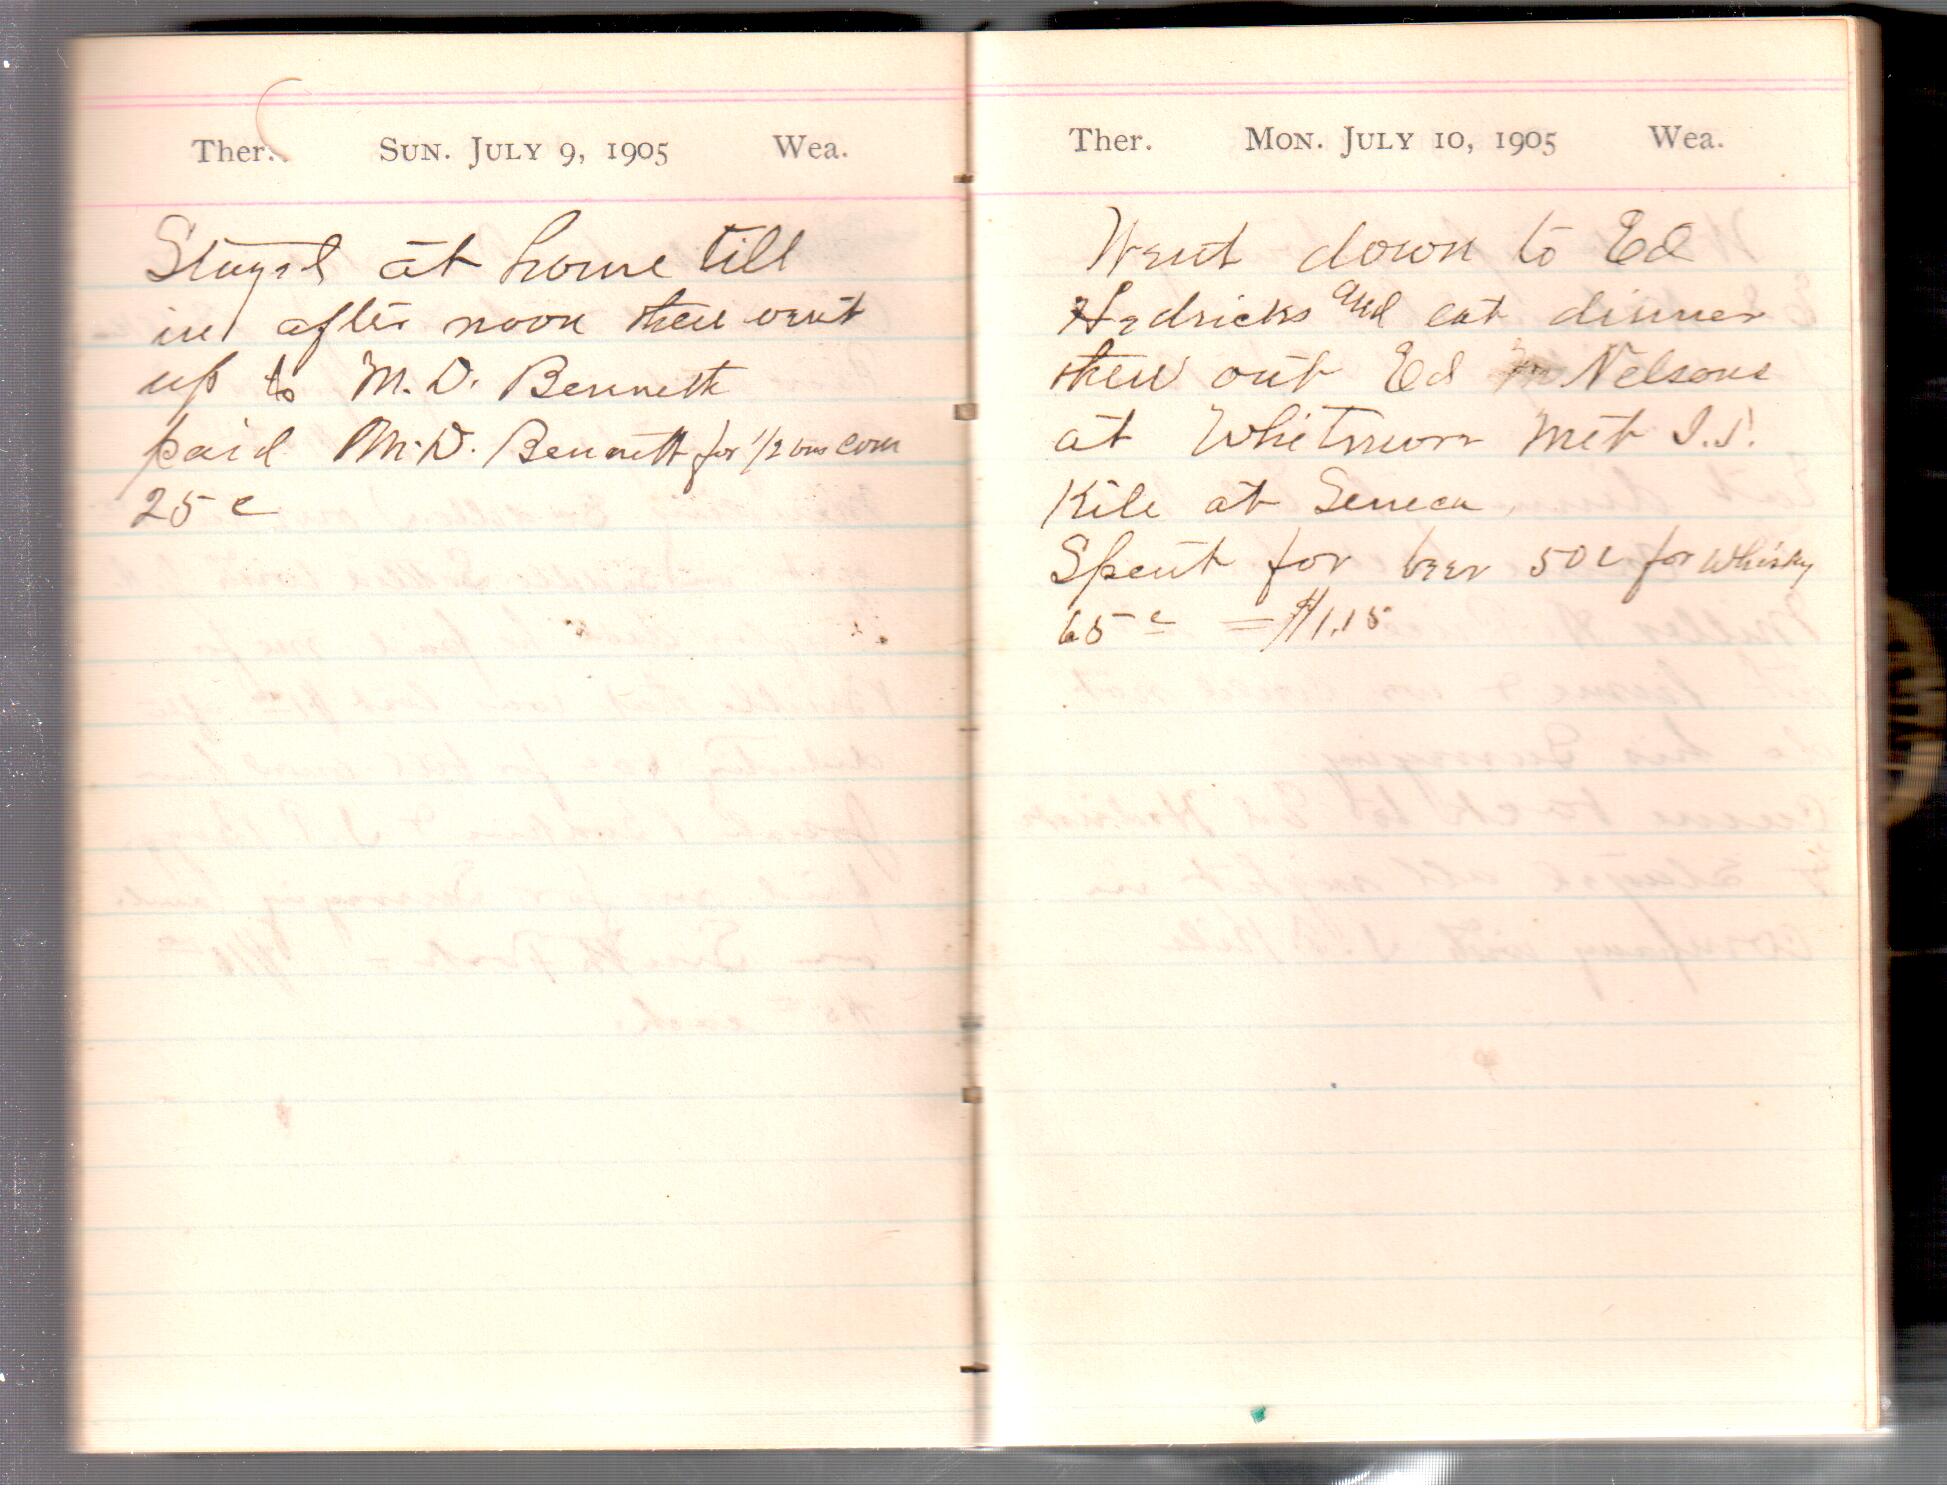 Ther. Sun. July 9, 1905 Wea.
Stayed at home till
in after noon then went
up to M. D. Bennett
paid M. D. Bennett for 1/2 bus corn
25 c
Ther. Mon. July 10, 1905 Wea.
Went down to Ed
Hedricks and eat dinner
then out Ed Nelsons
at Whitmore Met I.S.
Kile at Seneca
Spent for beer 50c for Whisky
65 c = $1.15